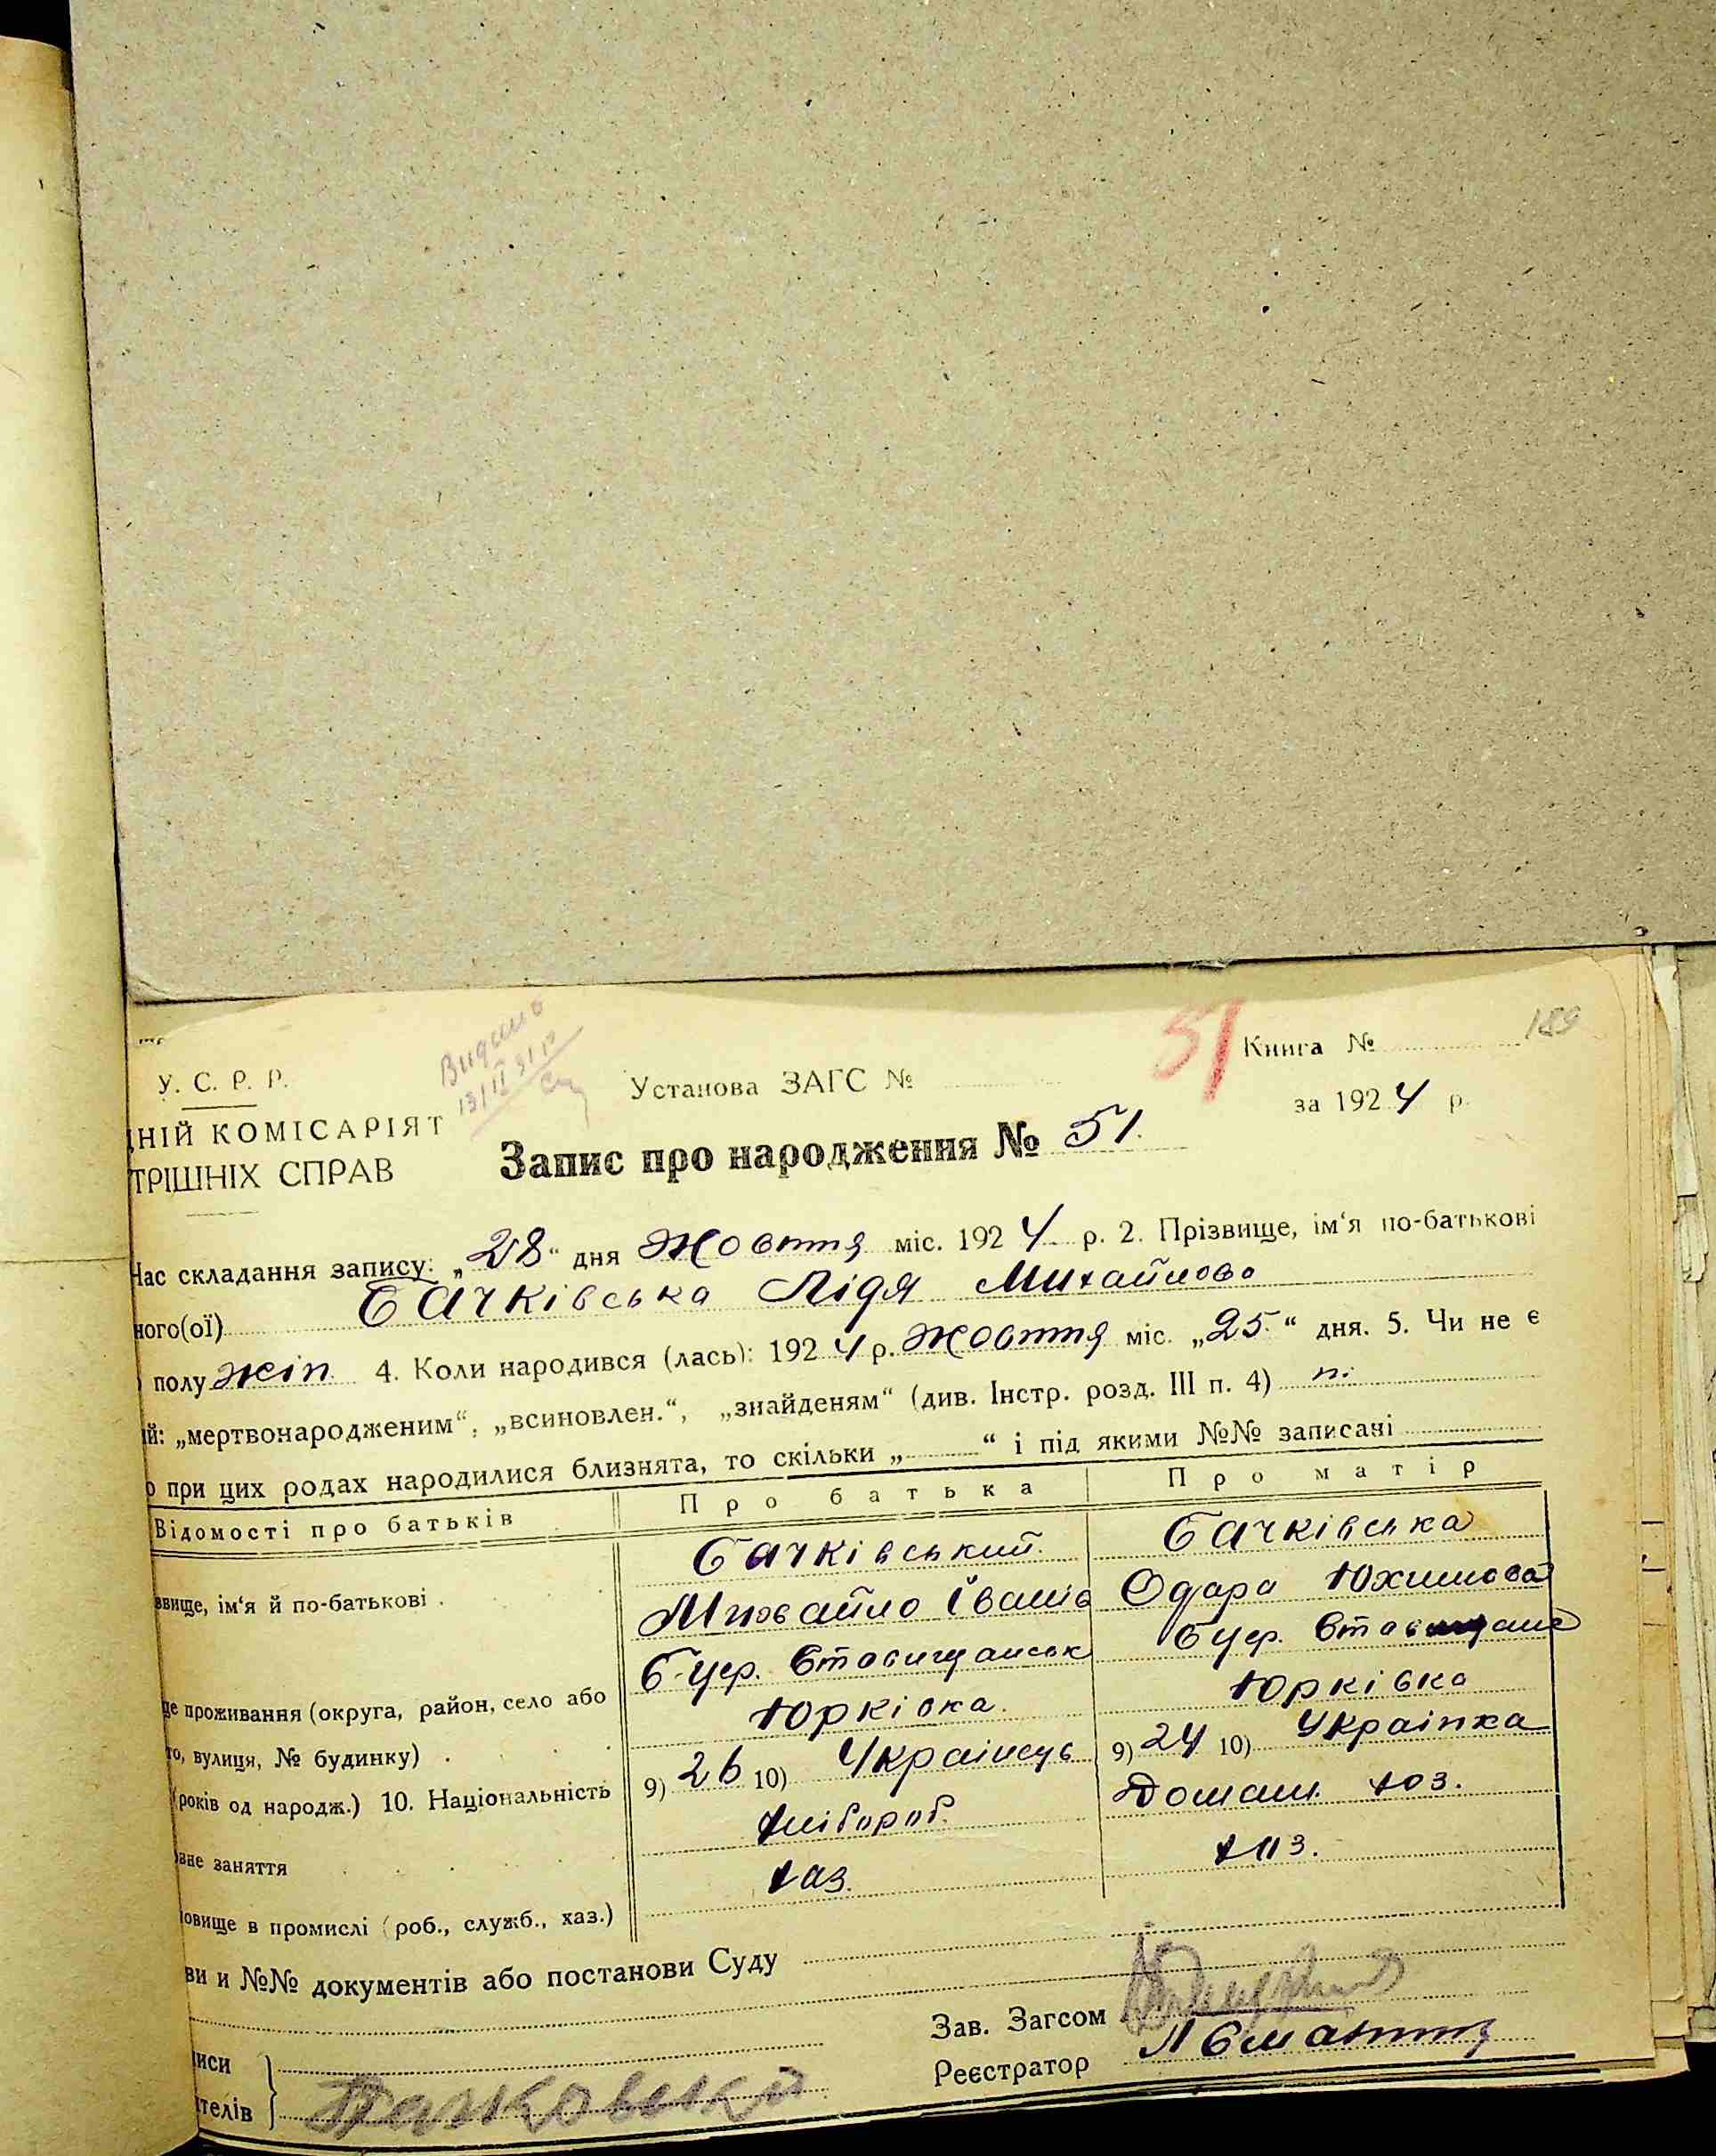 189
51 Книга №
У. С. Р. Р.
Видано
13/II 31 р
Установа ЗАГС №
за 1924 р.
ДНІЙ КОМІСАРІЯТ
ТРІШНІХ СПРАВ
Запис про народження № 51.
Час складання запису: „28“ дня Жовтня міс. 1924 р. 2. Прізвище, ім‘я по-батькові
ного(ої) Бачківська Лідя Михайлова
полу жін. 4. Коли народився (лась): 1924 р. Жовтня міс. „25.“ дня. 5. Чи не є
ий: „мертвонародженим“, „всиновлен.“, „знайденям“ (див. Інстр. розд. III п. 4) н.
о при цих родах народилися близнята, то скільки „ “ і під якими №№ записані
Відомості про батьків Про батька Про матір
Бачківський. Бачківська
звище, ім‘я й по-батькові . Михайло Іванів Одара Юхимова
Б-Цер. Ставищанськ БЦер. Ставищан
це проживання (округа, район, село або Юрківка. Юрківка
то, вулиця, № будинку)
(років од народж.) 10. Національність 9) 26 10) Українець 9) 24 10) Українка
вне заняття Хлібороб. Домаш. хоз.
овище в промислі (роб., служб., хаз.) хаз. хаз.
ви и №№ документів або постанови Суду
Зав. Загсом
Реєстратор
иси
ителів